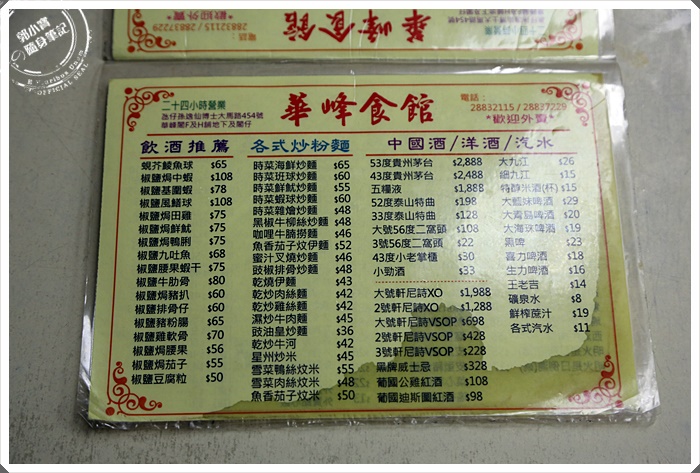 郭小寶
隨身筆記
OFFICIAL SEAL
電話：
28832115 / 28837229
*歡迎外賣*
華峰食館
二十四小時營業
二十四小時營業
氹仔孫逸仙博士大馬路454號
華峰閣F及H舖地下及閣仔
華峰食館
電話：
28832115 / 28837229
*歡迎外賣*
飲酒推薦
蜆芥鯪魚球 $65
椒鹽焗中蝦 $108
椒鹽基圍蝦 $78
椒鹽風鱔球 $108
椒鹽焗田雞 $75
椒鹽焗鮮魷 $75
椒鹽焗鴨脷 $75
椒鹽九吐魚 $68
椒鹽腰果蝦干 $75
椒鹽牛肋骨 $80
椒鹽焗豬扒 $60
椒鹽排骨仔 $60
椒鹽豬粉腸 $65
椒鹽雞軟骨 $70
椒鹽焗腰果 $56
椒鹽焗茄子 $55
椒鹽豆腐粒 $50
各式炒粉麵
時菜海鮮炒麵 $65
時菜班球炒麵 $60
時菜鮮魷炒麵 $55
時菜蝦球炒麵 $60
時菜雜燴炒麵 $48
黑椒牛柳絲炒麵 $48
咖哩牛腩撈麵 $48
魚香茄子炆伊麵 $52
蜜汁叉燒炒麵 $46
豉椒排骨炒麵 $48
乾燒伊麵 $43
乾炒肉絲麵 $42
乾炒雞絲麵 $42
濕炒牛肉麵 $45
豉油皇炒麵 $36
乾炒牛河 $42
星州炒米 $45
雪菜鴨絲炆米 $55
雪菜肉絲炆米 $48
魚香茄子炆米 $50
中國酒/洋酒/汽水
53度貴州茅台 $2,888
43度貴州茅台 $2,488
五糧液 $1,888
52度泰山特曲 $198
33度泰山特曲 $128
大號56度二窩頭 $108
3號56度二窩頭 $22
43度小老掌櫃 $30
小勁酒 $33
大號軒尼詩XO $1,988
2號軒尼詩XO $1,288
大號軒尼詩VSOP $698
2號軒尼詩VSOP $428
3號軒尼詩VSOP $228
黑牌威士忌 $328
葡國公雞紅酒 $108
葡國迪斯圖紅酒 $98
大九江 $26
細九江 $15
特醇米酒(杯) $15
大藍妹啤酒 $29
大青島啤酒 $20
大海珠啤酒 $19
黑啤 $23
喜力啤酒 $18
生力啤酒 $16
王老吉 $14
礦泉水 $8
鮮榨蔗汁 $19
各式汽水 $11